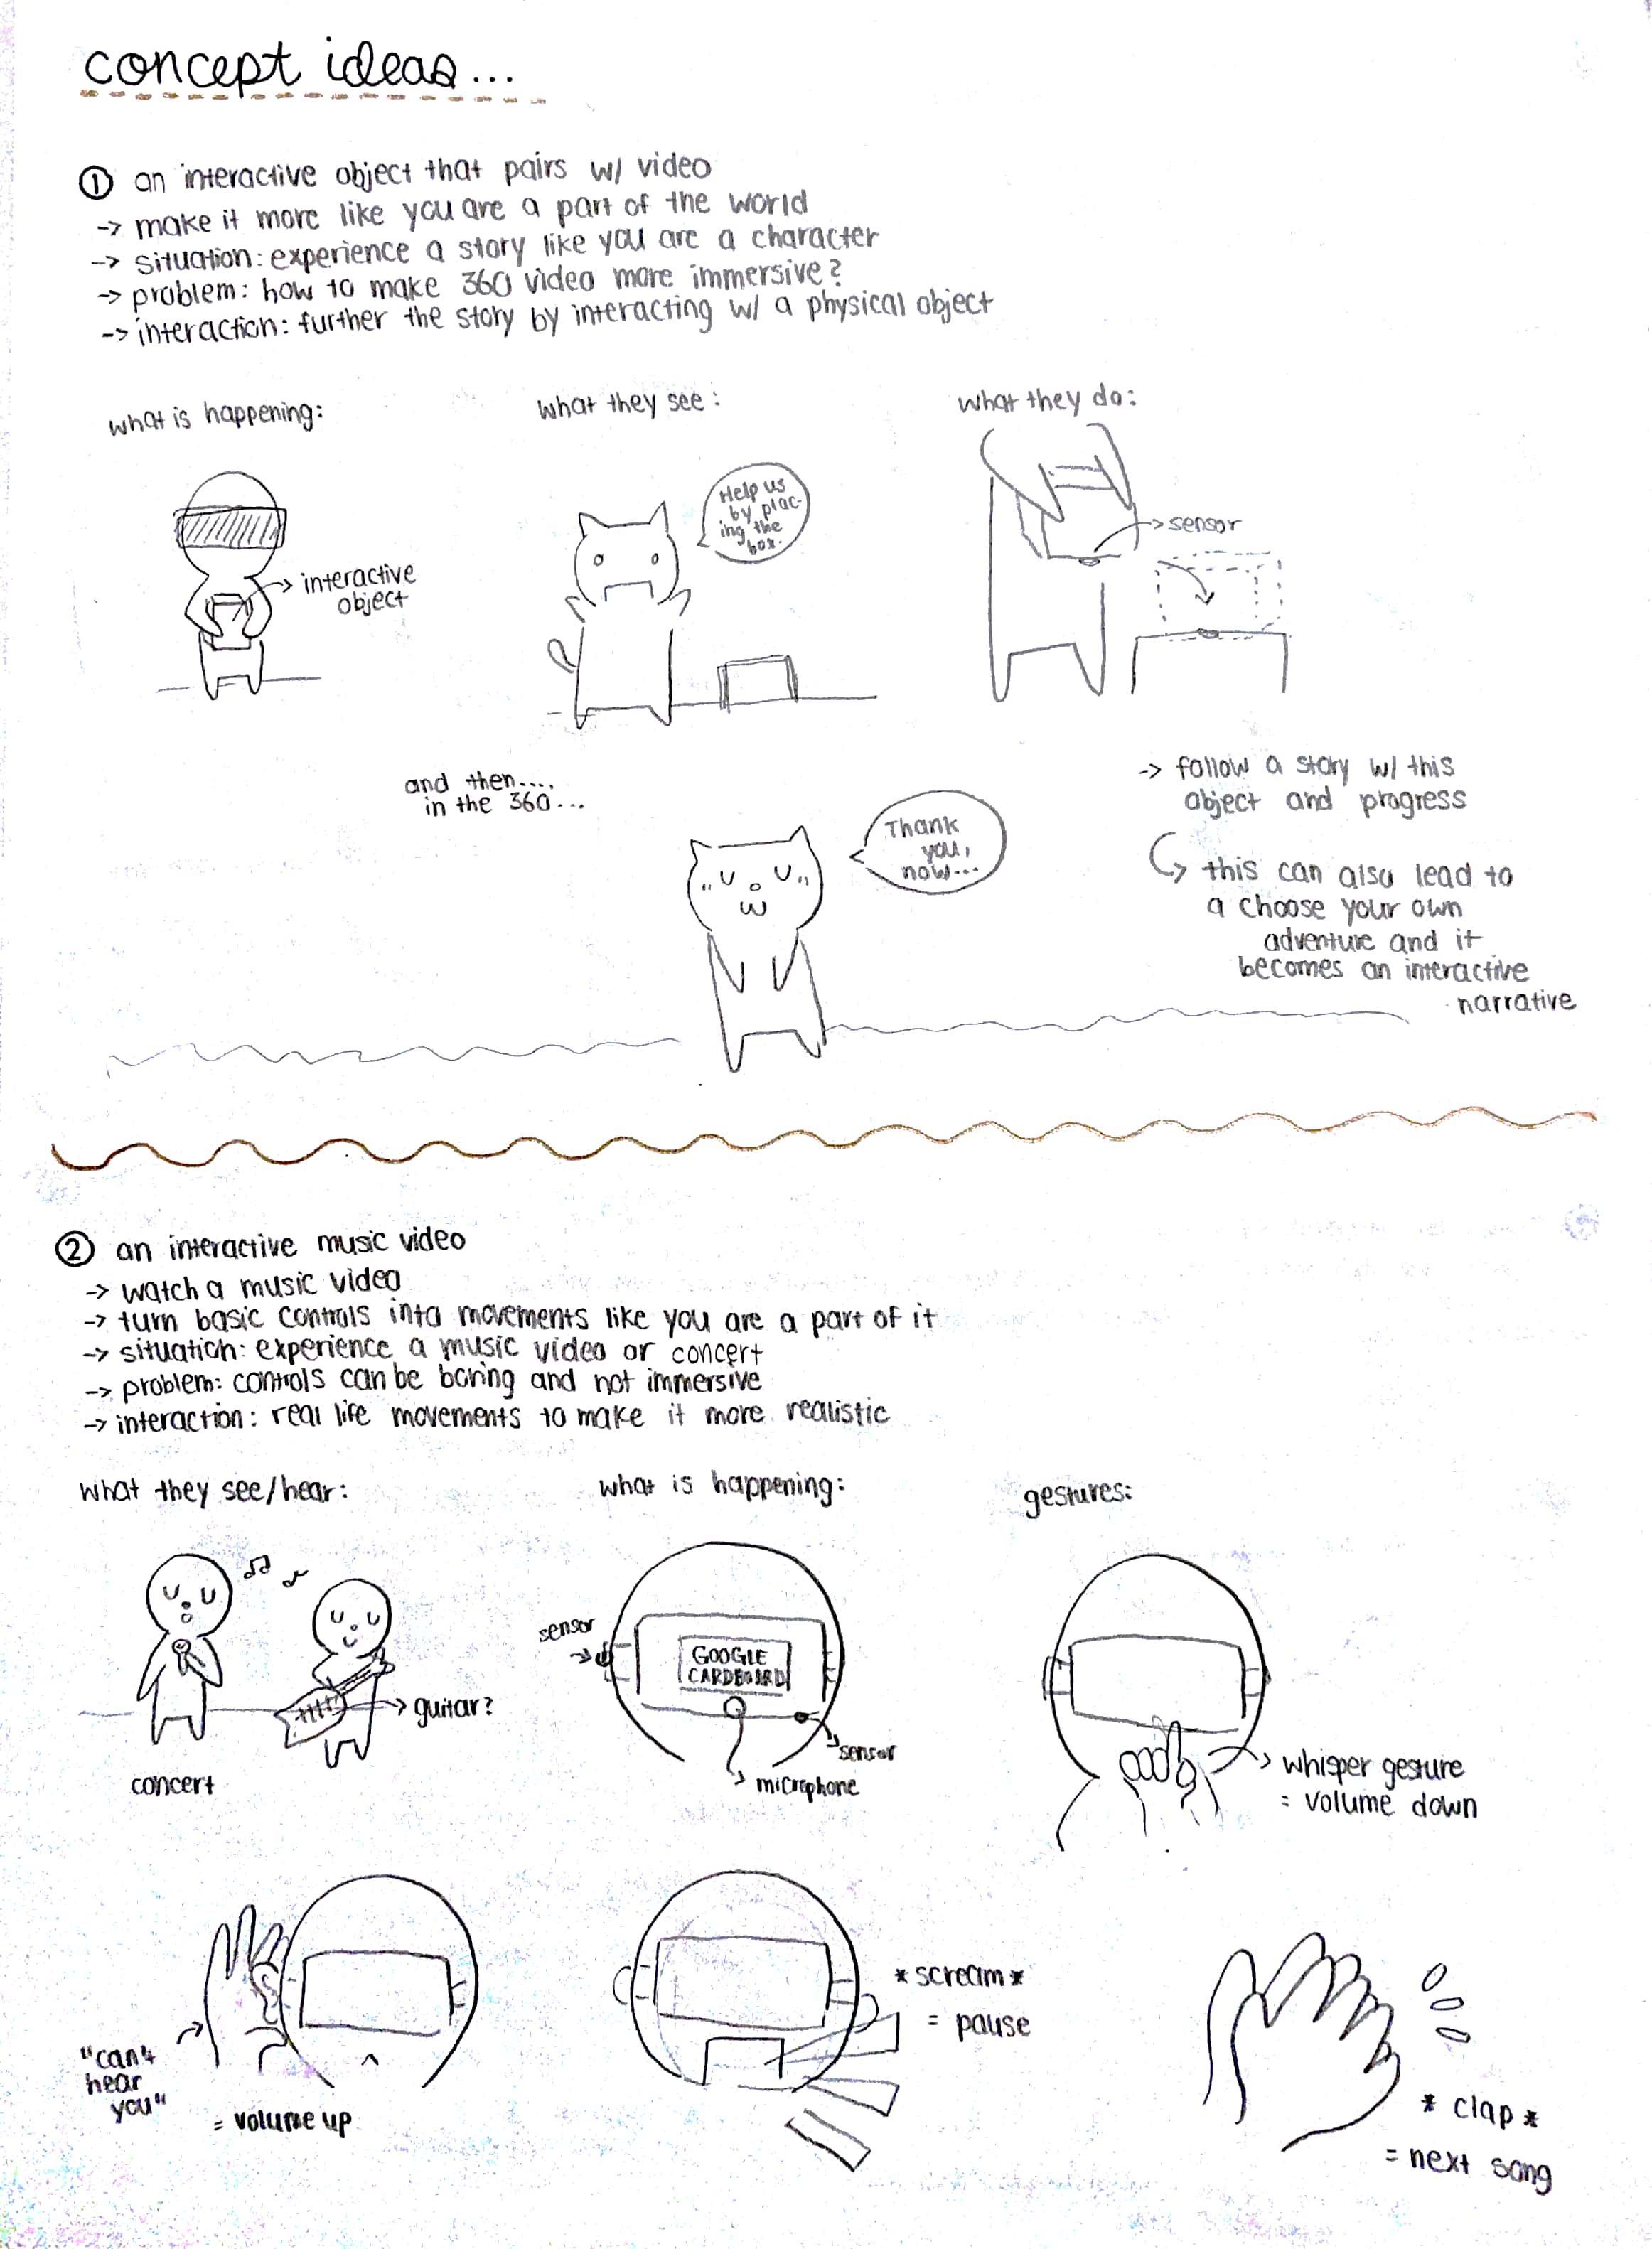 concept ideas...
① an interactive object that pairs w/ video
-> make it more like you are a part of the world
-> situation: experience a story like you are a character
-> problem: how to make 360 video more immersive?
-> interaction: further the story by interacting w/ a physical object
what is happening:
what they see:
what they do:
Help us
by plac-
ing the
box.
-> sensor
-> interactive
object
and then....
in the 360...
Thank
you,
now...
-> follow a story w/ this
object and progress
this can also lead to
a choose your own
adventure and it
becomes an interactive
narrative
② an interactive music video
-> watch a music video
-> turn basic controls into movements like you are a part of it
-> situation: experience a music video or concert
-> problem: controls can be boring and not immersive
-> interaction: real life movements to make it more realistic
what they see/hear:
what is happening:
gestures:
sensor
GOOGLE
CARDBOARD
-> guitar?
sensor
microphone
concert
whisper gesture
= volume down
"can't
hear
you"
= volume up
*scream*
= pause
* clap *
= next song